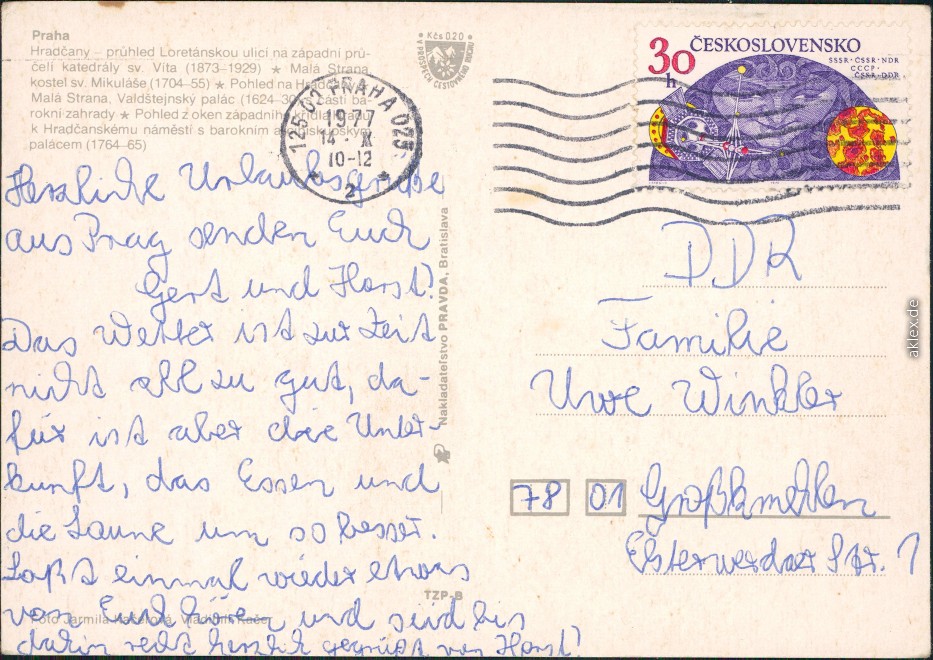 Praha
Hradčany – průhled Loretánskou ulicí na západní prů-
čelí katedrály sv. Víta (1873–1929) ★ Malá Strana,
kostel sv. Mikuláše (1704–55) ★ Pohled na
Malá Strana, Valdštejnský palác (1624– části ba-
rokní zahrady ★ Pohled z oken západního křídla hradu
k Hradčanskému náměstí s barokním
palácem (1764–65)
• Kčs 0,20 •
ČESKOSLOVENSKO
30
h
SSSR·ČSSR·NDR
СССР·
ČSSR·DDR
PRAHA 025
1977
14 · X
10-12
2
Herzliche Urlaubsgrüße
aus Prag senden Euch
Gert und Horst!
Das Wetter ist zur Zeit
nicht all zu gut, da-
für ist aber die Unter-
kunft, das Essen und
die Laune um so besser.
Laßt einmal wieder etwas
von Euch hören und seid bis
dahin recht herzlich gegrüßt von Horst!
Nakladateľstvo PRAVDA, Bratislava
TZP-B
Foto Jarmila Kačerová, Vladimír Kačer
DDR
Familie
Uwe Winkler
78 01 Großkmehlen
Elsterwerdaer Str. 1
aklex.de